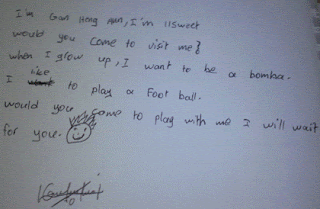 I'm Gan Hong Han, I'm 11sweet
would you come to visit me?
when I grow up, I want to be a bomba.
I like to play a Foot ball.
would you come to play with me I will wait
for you.